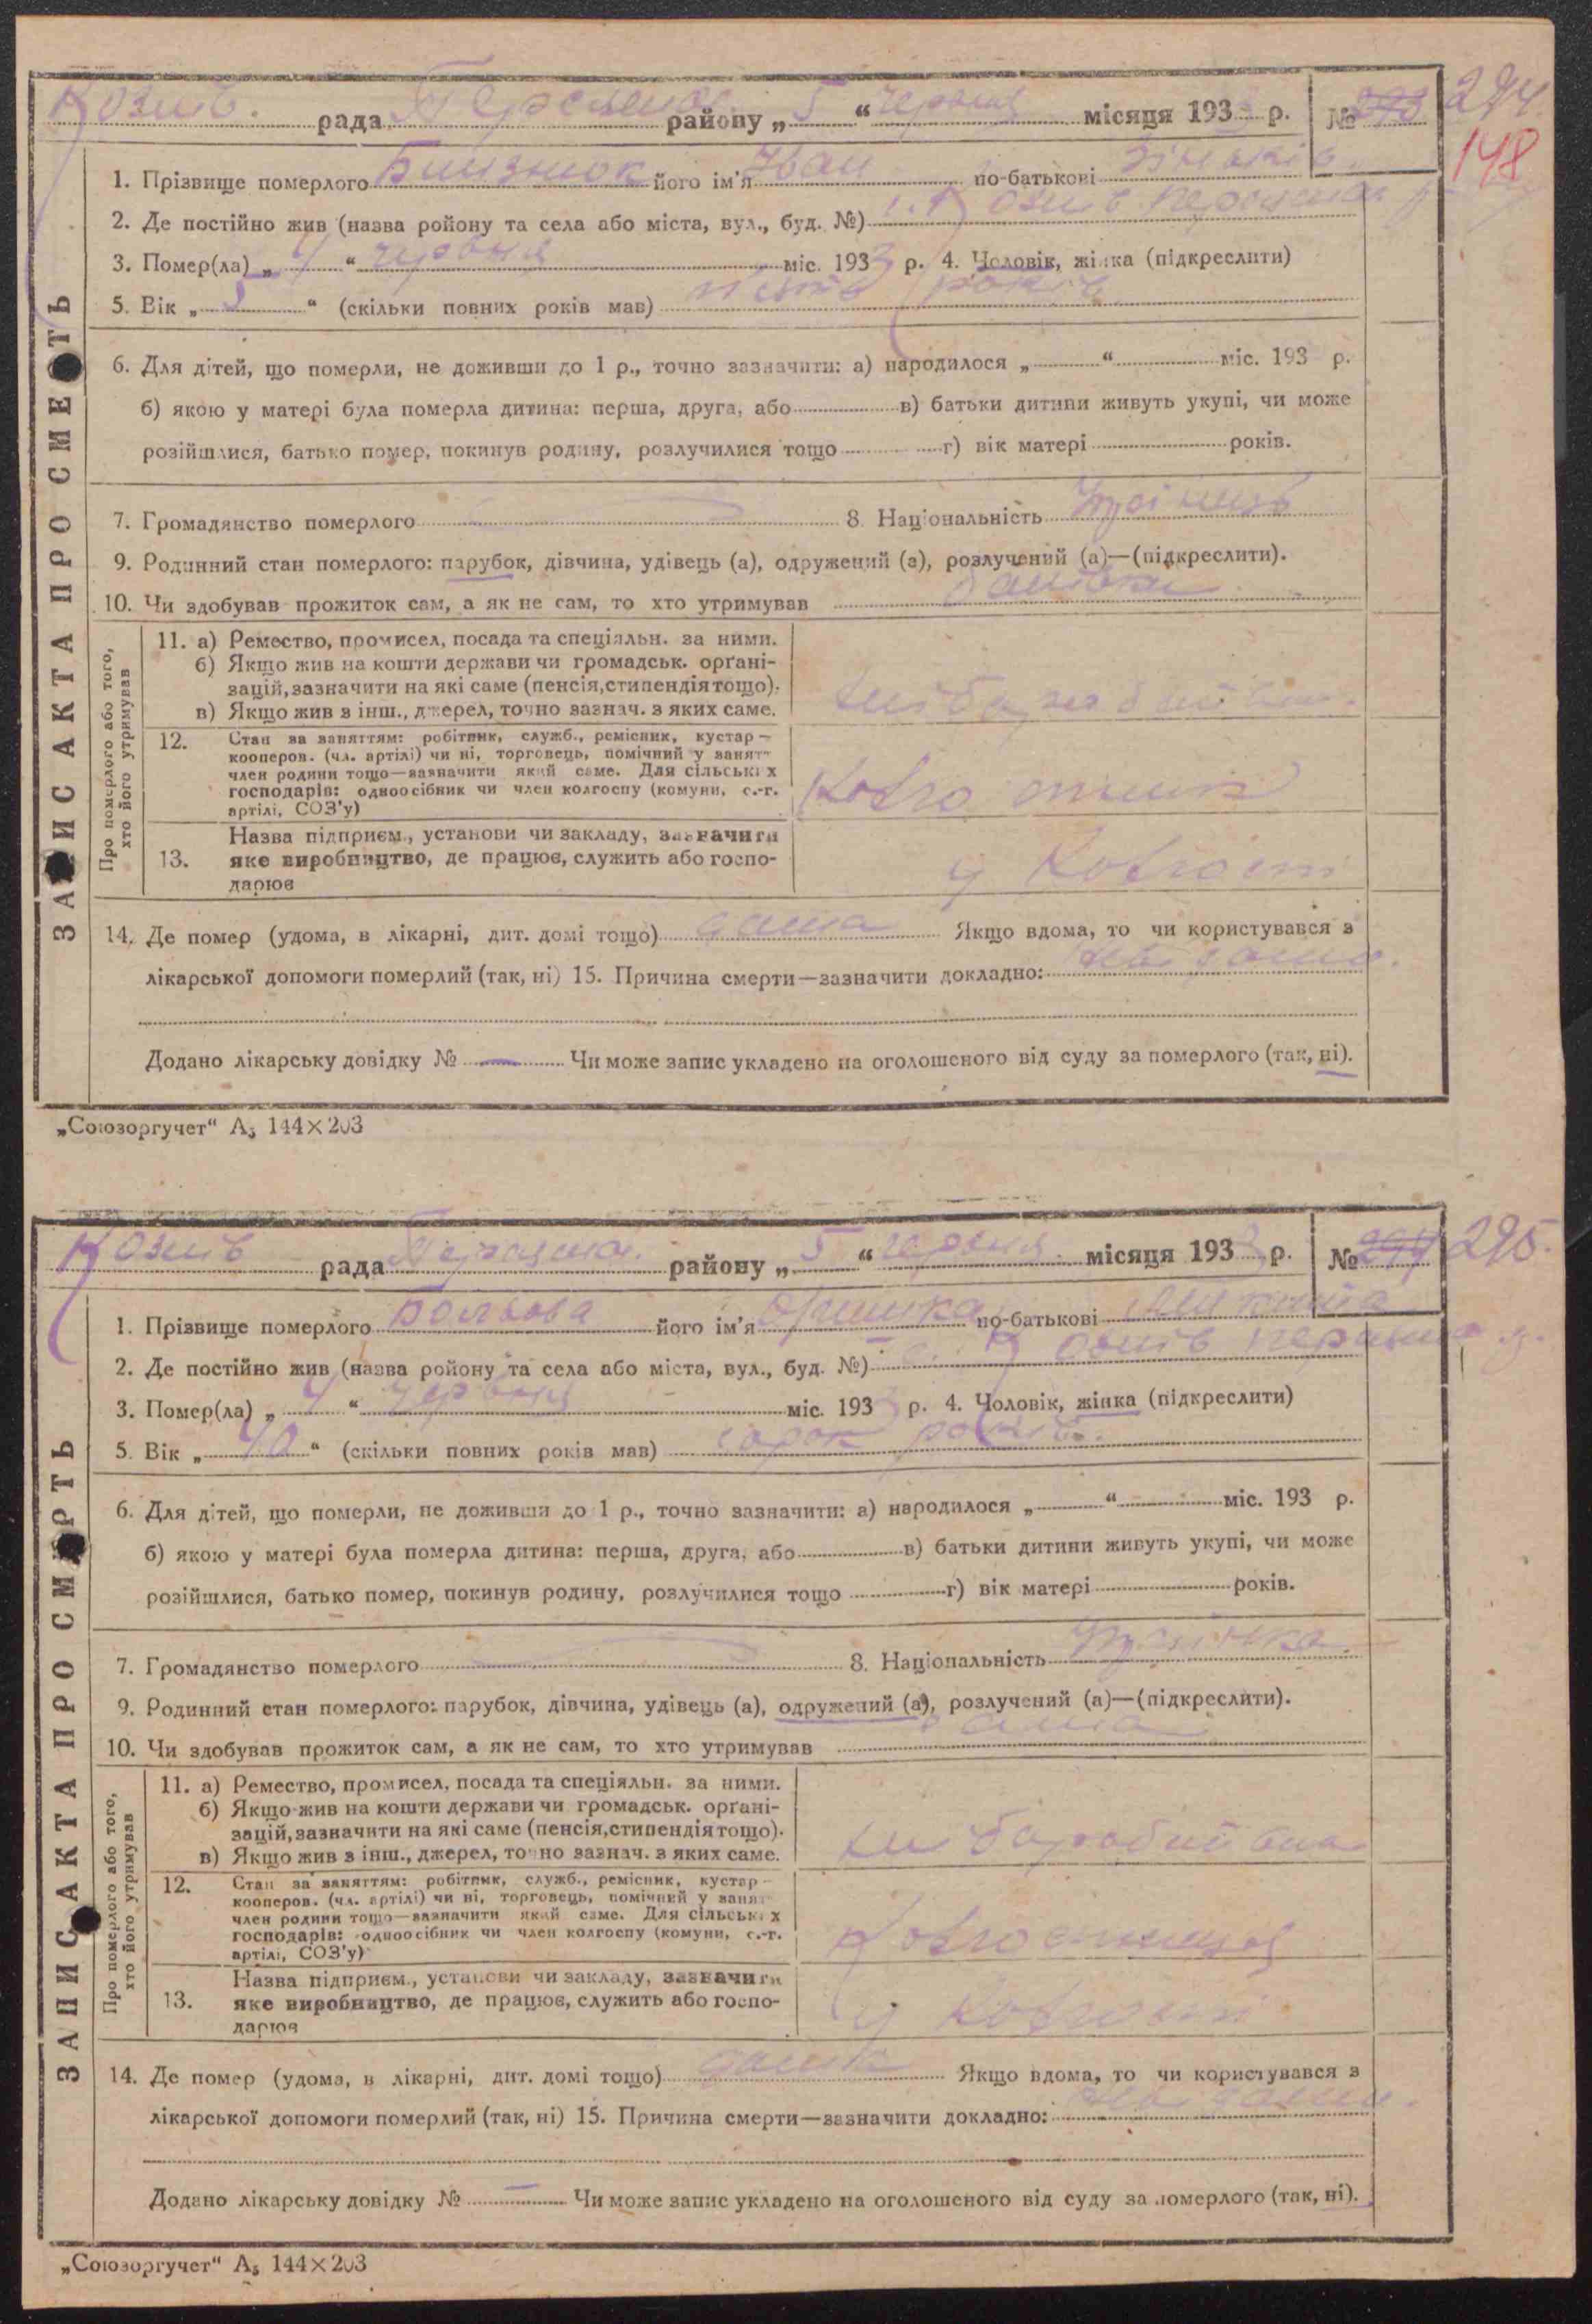 Козіїв. рада районy „ 5 “ червня місяця 193 3 р. № 293 294.
148
1. Прізвище померлого Близнюк його ім'я Іван по-батькові
2. Де постійно жив (назва ройону та села або міста, вул., буд. №) с.
3. Помер(ла) „ 4 “ червня міс. 193 3 р. 4. Чоловік, жінка (підкреслити)
5. Вік „ 5 “ (скільки повних років мав) п'ять років
6. Для дітей, що померли, не доживши до 1 р., точно зазначити: а) народилося „ “ міс. 193 р.
б) якою у матері була померла дитина: перша, друга, або в) батьки дитини живуть укупі, чи може
розійшлися, батько помер, покинув родину, розлучилися тощо г) вік матері років.
7. Громадянство померлого 8. Національність Українець
9. Родинний стан померлого: парубок, дівчина, удівець (а), одружений (а), розлучений (а)—(підкреслити).
10. Чи здобував прожиток сам, а як не сам, то хто утримував батьки
ЗАПИС АКТА ПРО СМЕРТЬ
Про померлого або того,
хто його утримував
11. а) Ремество, промисел, посада та спеціяльн. за ними.
б) Якщо жив на кошти держави чи громадськ. орґані-
зацій, зазначити на які саме (пенсія, стипендія тощо).
в) Якщо жив з інш., джерел, точно зазнач. з яких саме.
12. Стан за заняттям: робітник, служб., ремісник, кустар—
кооперов. (чл. артілі) чи ні, торговець, помічний у занят
член родини тощо—зазначити який саме. Для сільських
господарів: одноосібник чи член колгоспу (комуни, с.-г.
артілі, СОЗ'у)
Назва підприєм., установи чи закладу, зазначити
13. яке виробництво, де працює, служить або госпо-
дарює
у
14. Де помер (удома, в лікарні, дит. домі тощо) дома Якщо вдома, то чи користувався з
лікарської допомоги померлий (так, ні) 15. Причина смерти—зазначити докладно:
Додано лікарську довідку № — Чи може запис укладено на оголошеного від суду за померлого (так, ні).
„Союзоргучет“ А₅ 144×203
Козіїв рада районy „ 5 “ червня місяця 193 3 р. № 294 295.
1. Прізвище померлого його ім'я Оришка по-батькові Микита
2. Де постійно жив (назва ройону та села або міста, вул., буд. №) с.
3. Помер(ла) „ 4 “ червня міс. 193 р. 4. Чоловік, жінка (підкреслити)
5. Вік „ 40 “ (скільки повних років мав) сорок років.
6. Для дітей, що померли, не доживши до 1 р., точно зазначити: а) народилося „ “ міс. 193 р.
б) якою у матері була померла дитина: перша, друга, або в) батьки дитини живуть укупі, чи може
розійшлися, батько помер, покинув родину, розлучилися тощо г) вік матері років.
7. Громадянство померлого 8. Національність Українка.
9. Родинний стан померлого: парубок, дівчина, удівець (а), одружений (а), розлучений (а)—(підкреслити).
10. Чи здобував прожиток сам, а як не сам, то хто утримував сама
ЗАПИС АКТА ПРО СМЕРТЬ
Про померлого або того,
хто його утримував
11. а) Ремество, промисел, посада та спеціяльн. за ними.
б) Якщо жив на кошти держави чи громадськ. орґані-
зацій, зазначити на які саме (пенсія, стипендія тощо).
в) Якщо жив з інш., джерел, точно зазнач. з яких саме.
12. Стан за заняттям: робітник, служб., ремісник, кустар—
кооперов. (чл. артілі) чи ні, торговець, помічний у занят
член родини тощо—зазначити який саме. Для сільських
господарів: одноосібник чи член колгоспу (комуни, с.-г.
артілі, СОЗ'у)
Назва підприєм., установи чи закладу, зазначити
13. яке виробництво, де працює, служить або госпо-
дарює
у
14. Де помер (удома, в лікарні, дит. домі тощо) дома Якщо вдома, то чи користувався з
лікарської допомоги померлий (так, ні) 15. Причина смерти—зазначити докладно:
Додано лікарську довідку № — Чи може запис укладено на оголошеного від суду за померлого (так, ні).
„Союзоргучет“ А₅ 144×203